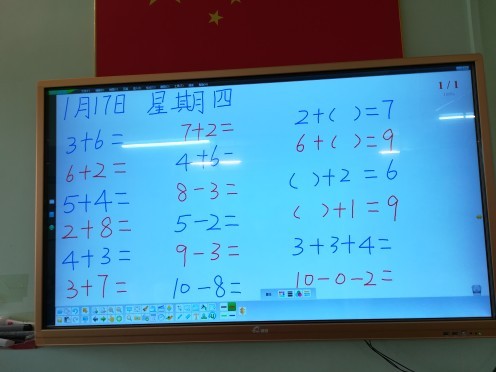 1月17日 星期四
1/1
3+6=
6+2=
5+4=
2+8=
4+3=
3+7=
7+2=
4+6=
8-3=
5-2=
9-3=
10-8=
2+( )=7
6+( )=9
( )+2=6
( )+1=9
3+3+4=
10-0-2=